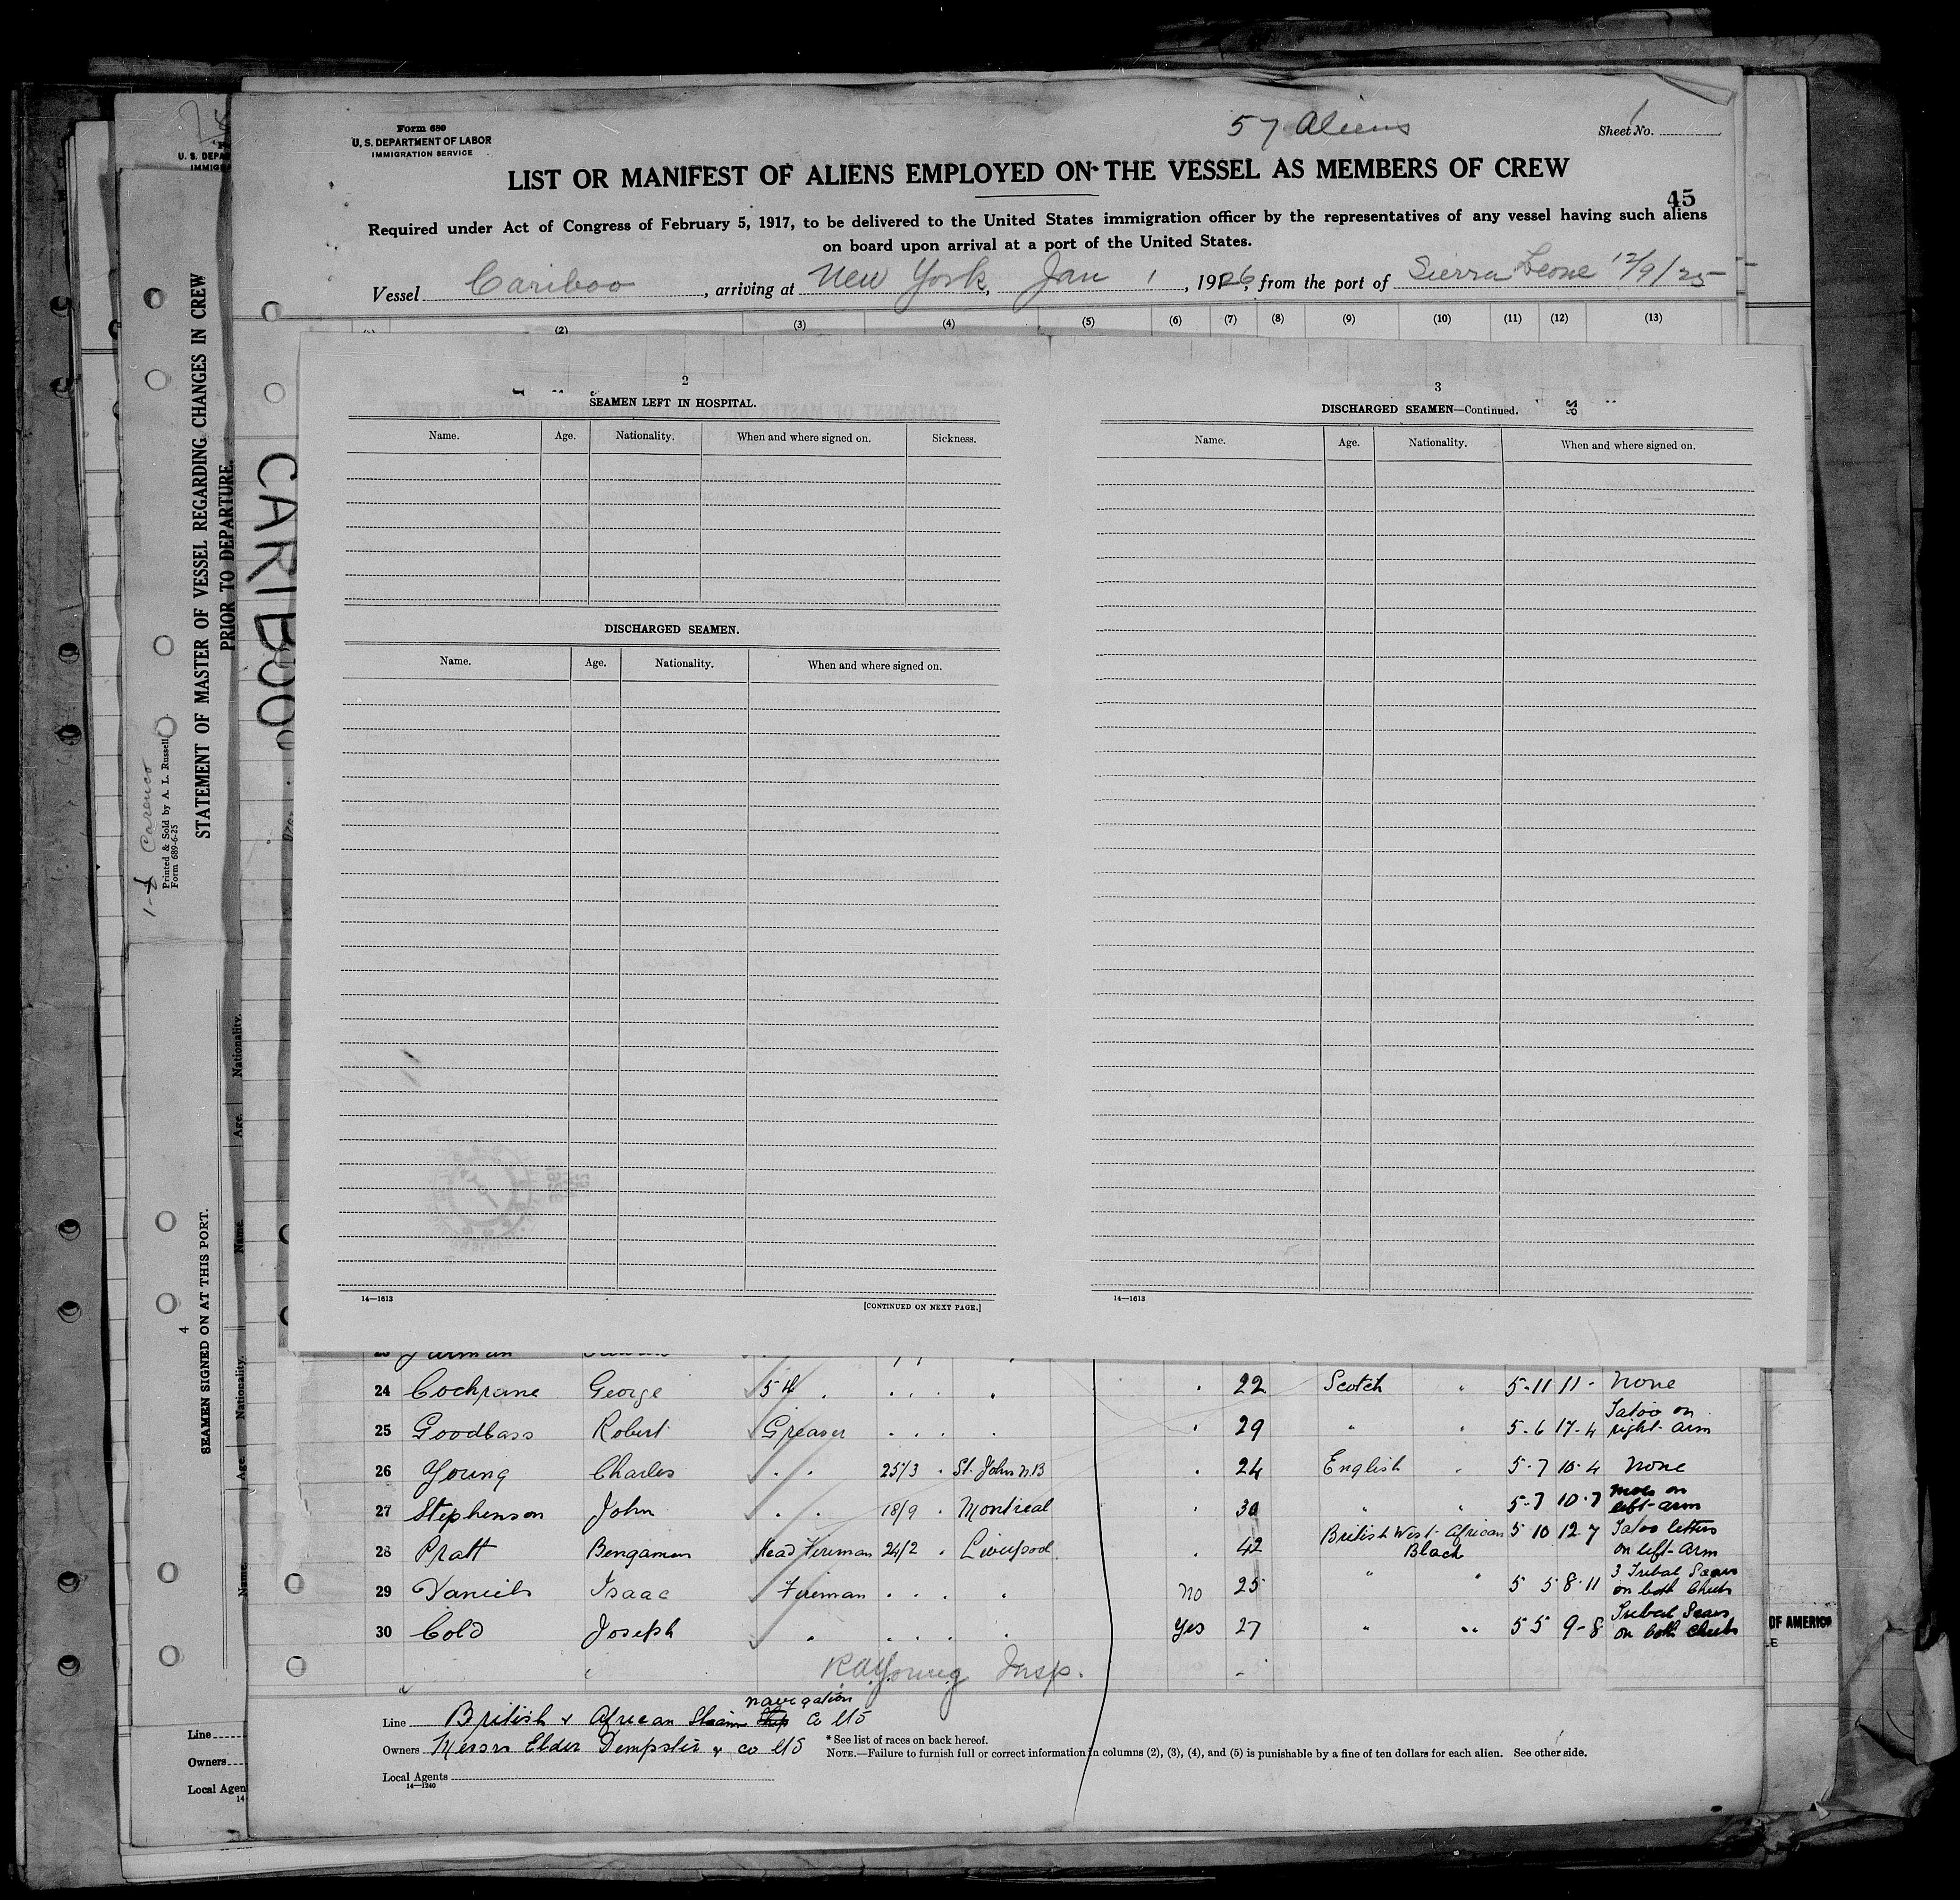 57 Aliens
Form 680
U. S. DEPARTMENT OF LABOR
IMMIGRATION SERVICE
Sheet No. 1
LIST OR MANIFEST OF ALIENS EMPLOYED ON THE VESSEL AS MEMBERS OF CREW
45
Required under Act of Congress of February 5, 1917, to be delivered to the United States immigration officer by the representatives of any vessel having such aliens
on board upon arrival at a port of the United States.
Vessel Cariboo, arriving at New York, Jan 1, 1926, from the port of Sierra Leone 12/9/25
(2) (3) (4) (5) (6) (7) (8) (9) (10) (11) (12) (13)
2
SEAMEN LEFT IN HOSPITAL.
Name. Age. Nationality. When and where signed on. Sickness.
DISCHARGED SEAMEN.
Name. Age. Nationality. When and where signed on.
14—1613
[CONTINUED ON NEXT PAGE.]
3
DISCHARGED SEAMEN—Continued.
Name. Age. Nationality. When and where signed on.
14—1613
24 Cochrane George 5th . . . . . . 22 Scotch " 5-11 11- None
25 Goodbass Robert Greaser . . . . . 29 " " 5-6 17-4 Tatoo on right arm
26 Young Charles . . 25/3 . St. John N.B . 24 English " 5-7 10-4 None
27 Stephenson John . . 18/9 . Montreal . 30 " " 5-7 10-7 moles on left arm
28 Pratt Bengamen Head Fireman 24/2 . Liverpool . 42 British West African Black 5 10 12 7 Tatoo letters on left arm
29 Daniels Isaac Fireman . . . " No 25 " " 5 5 8-11 3 Tribal Scars on both Cheeks
30 Cold Joseph " . . . . Yes 27 " " 5 5 9-8 Tribal Scars on both cheeks
R A Young Insp.
navigation
Line British & African Steam Ship Co Ltd
Owners Messrs Elder Dempster & co Ltd
* See list of races on back hereof.
NOTE.—Failure to furnish full or correct information in columns (2), (3), (4), and (5) is punishable by a fine of ten dollars for each alien. See other side.
Local Agents
14—1240
CARIBOO
STATEMENT OF MASTER OF VESSEL REGARDING CHANGES IN CREW
PRIOR TO DEPARTURE.
Printed & Sold by A. L. Russell
Form 689-6-25
4
SEAMEN SIGNED ON AT THIS PORT.
Name. Age. Nationality. Name. Age. Nationality.
U. S. DEPA
IMMIG
Line
Owners
Local Agen
14
OF AMERICA